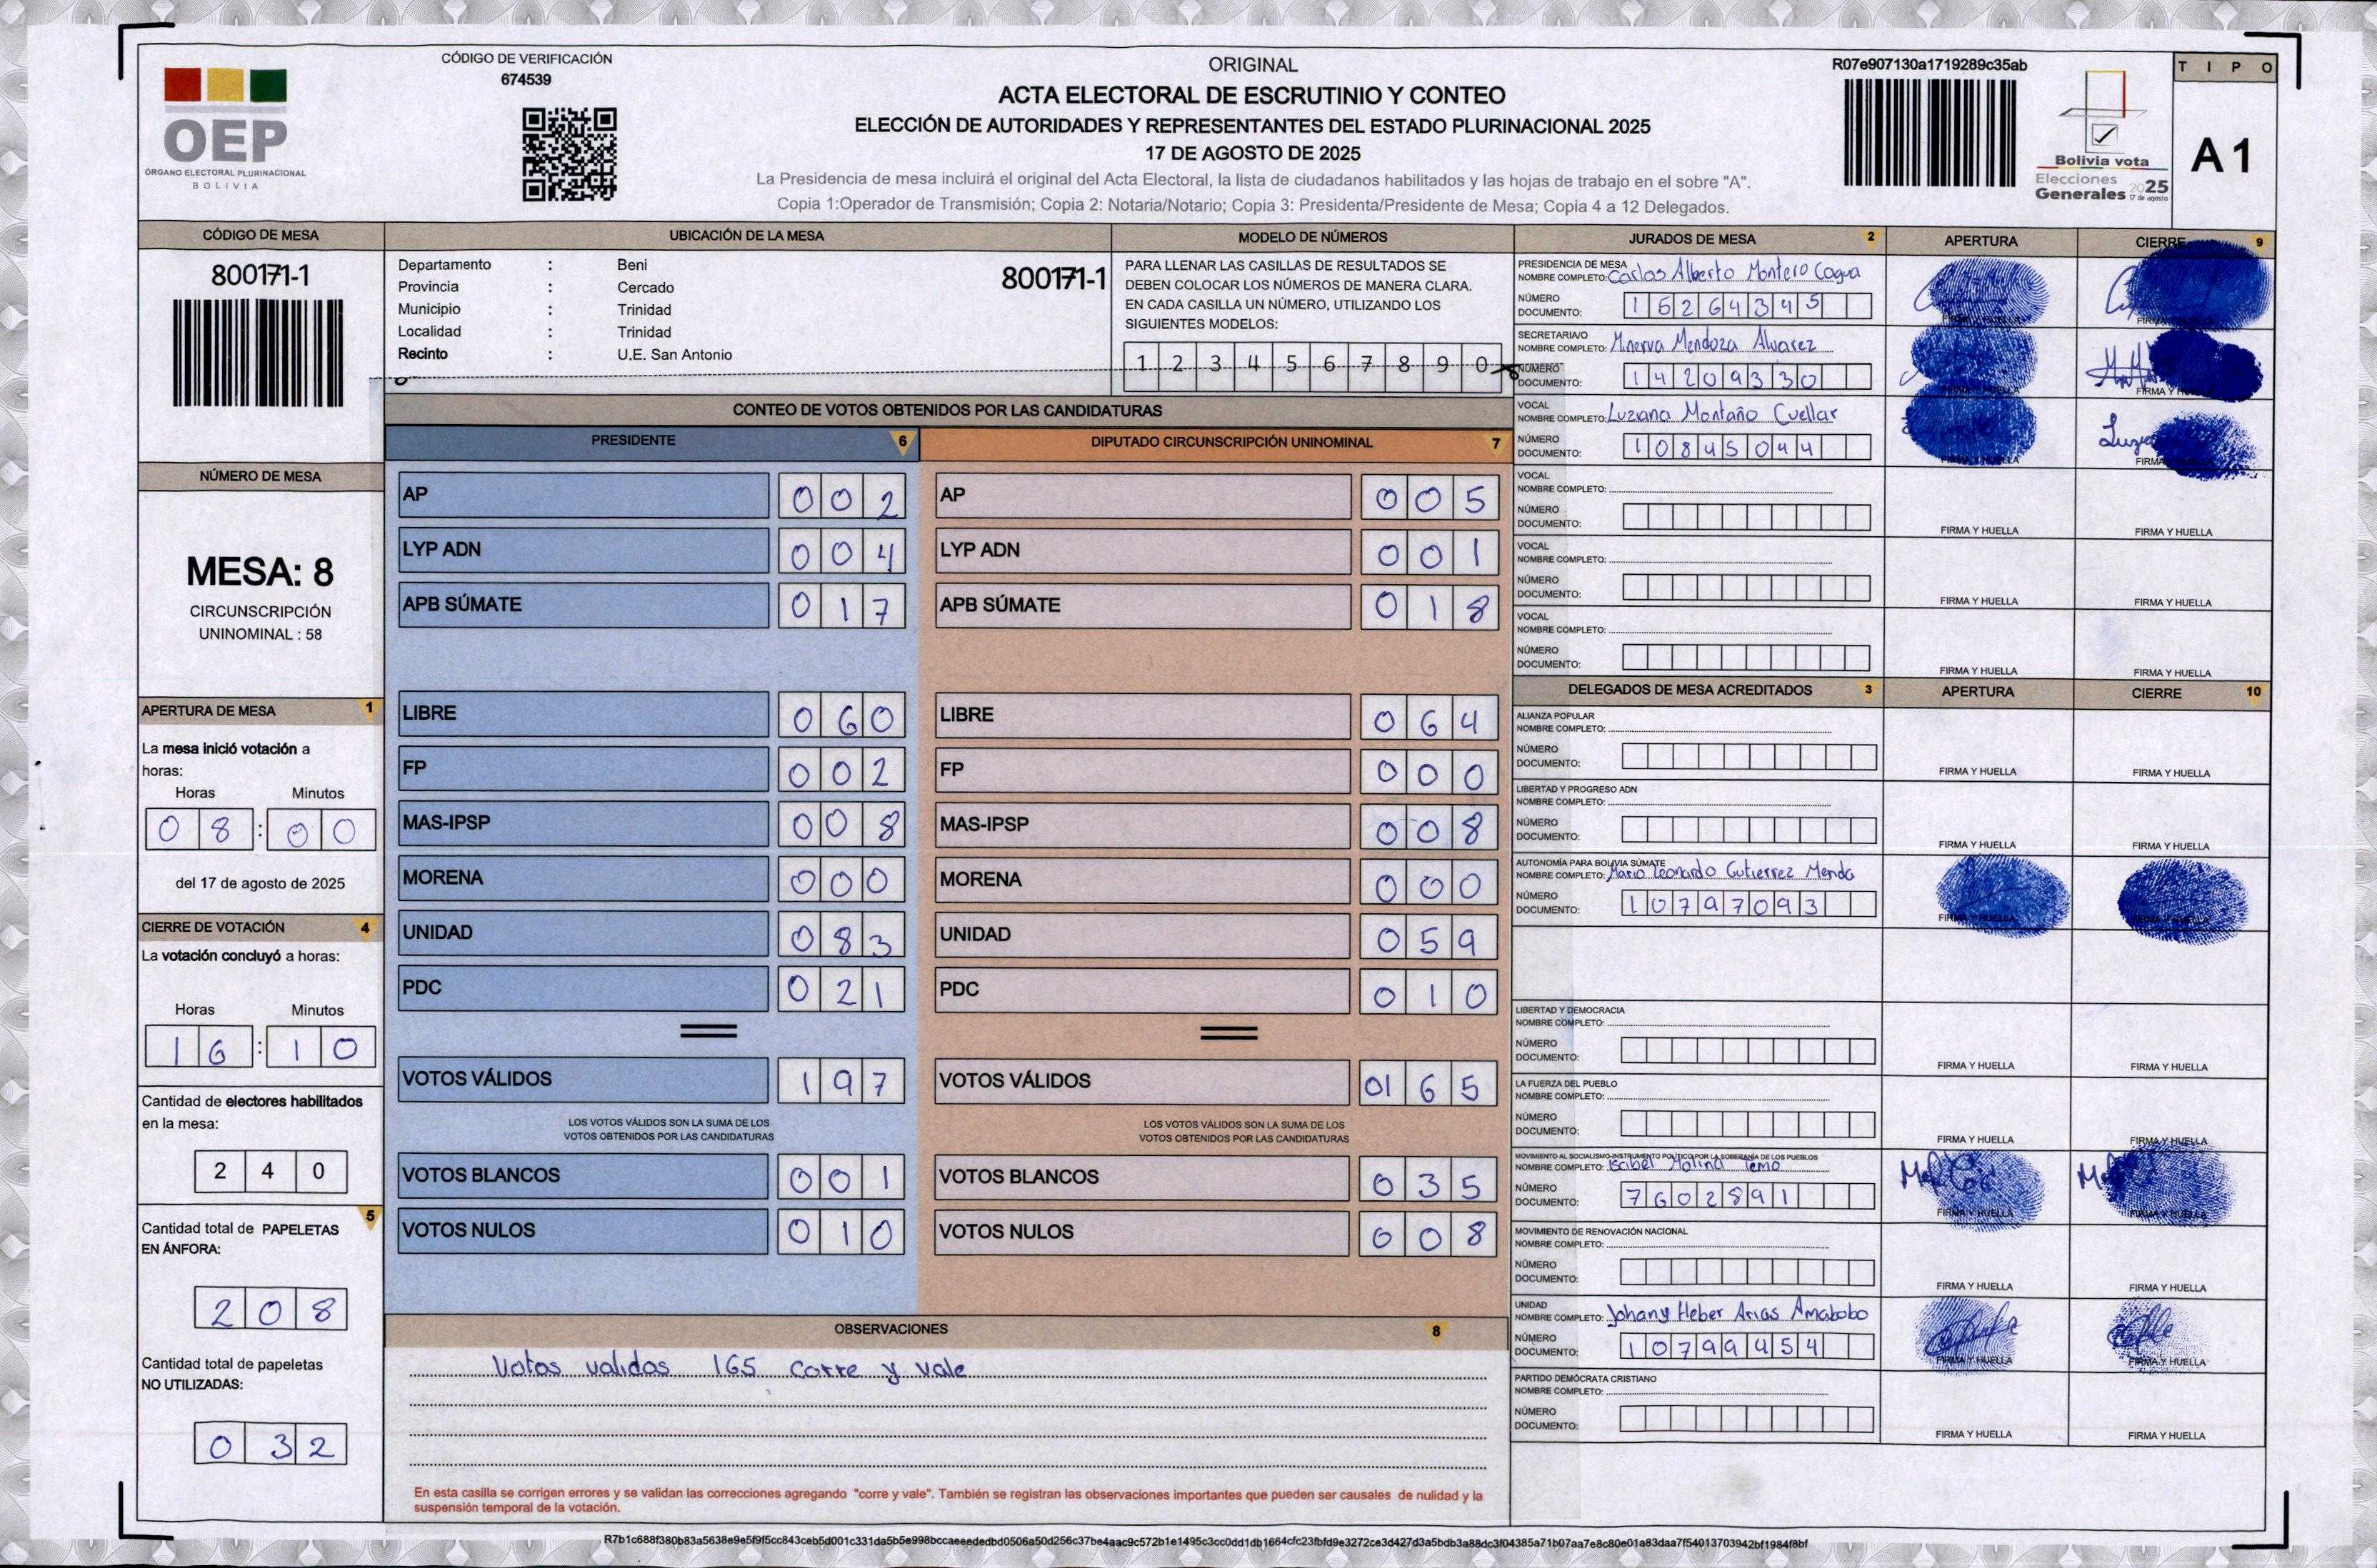 CÓDIGO DE VERIFICACIÓN
674539
OEP
ÓRGANO ELECTORAL PLURINACIONAL
BOLIVIA
ORIGINAL
ACTA ELECTORAL DE ESCRUTINIO Y CONTEO
ELECCIÓN DE AUTORIDADES Y REPRESENTANTES DEL ESTADO PLURINACIONAL 2025
17 DE AGOSTO DE 2025
La Presidencia de mesa incluirá el original del Acta Electoral, la lista de ciudadanos habilitados y las hojas de trabajo en el sobre "A".
Copia 1:Operador de Transmisión; Copia 2: Notaria/Notario; Copia 3: Presidenta/Presidente de Mesa; Copia 4 a 12 Delegados.
R07e907130a1719289c35ab
Bolivia vota
Elecciones
Generales 2025
17 de agosto
TIPO
A1
CÓDIGO DE MESA
800171-1
UBICACIÓN DE LA MESA
Departamento : Beni
800171-1
Provincia : Cercado
Municipio : Trinidad
Localidad : Trinidad
Recinto : U.E. San Antonio
MODELO DE NÚMEROS
PARA LLENAR LAS CASILLAS DE RESULTADOS SE
DEBEN COLOCAR LOS NÚMEROS DE MANERA CLARA.
EN CADA CASILLA UN NÚMERO, UTILIZANDO LOS
SIGUIENTES MODELOS:
1 2 3 4 5 6 7 8 9 0
NÚMERO DE MESA
MESA: 8
CIRCUNSCRIPCIÓN
UNINOMINAL : 58
APERTURA DE MESA 1
La mesa inició votación a
horas:
Horas Minutos
08:00
del 17 de agosto de 2025
CIERRE DE VOTACIÓN 4
La votación concluyó a horas:
Horas Minutos
16:10
Cantidad de electores habilitados
en la mesa:
240
5
Cantidad total de PAPELETAS
EN ÁNFORA:
208
Cantidad total de papeletas
NO UTILIZADAS:
032
CONTEO DE VOTOS OBTENIDOS POR LAS CANDIDATURAS
PRESIDENTE 6
AP 002
LYP ADN 004
APB SÚMATE 017
LIBRE 060
FP 002
MAS-IPSP 008
MORENA 000
UNIDAD 083
PDC 021
VOTOS VÁLIDOS 197
LOS VOTOS VÁLIDOS SON LA SUMA DE LOS
VOTOS OBTENIDOS POR LAS CANDIDATURAS
VOTOS BLANCOS 001
VOTOS NULOS 010
DIPUTADO CIRCUNSCRIPCIÓN UNINOMINAL 7
AP 005
LYP ADN 001
APB SÚMATE 018
LIBRE 064
FP 000
MAS-IPSP 008
MORENA 000
UNIDAD 059
PDC 010
VOTOS VÁLIDOS 0165
LOS VOTOS VÁLIDOS SON LA SUMA DE LOS
VOTOS OBTENIDOS POR LAS CANDIDATURAS
VOTOS BLANCOS 035
VOTOS NULOS 008
OBSERVACIONES 8
Votos validos 165 corre y vale
En esta casilla se corrigen errores y se validan las correcciones agregando "corre y vale". También se registran las observaciones importantes que pueden ser causales de nulidad y la
suspensión temporal de la votación.
JURADOS DE MESA 2 APERTURA CIERRE 9
PRESIDENCIA DE MESA
NOMBRE COMPLETO: Carlos Alberto Montero Cagua
NÚMERO
DOCUMENTO: 16264345
SECRETARIA/O
NOMBRE COMPLETO: Minerva Mendoza Alvarez
NÚMERO
DOCUMENTO: 14209330
FIRMA Y HUELLA
VOCAL
NOMBRE COMPLETO: Luziana Montaño Cuellar
NÚMERO
DOCUMENTO: 10845044
VOCAL
NOMBRE COMPLETO:
NÚMERO
DOCUMENTO:
FIRMA Y HUELLA FIRMA Y HUELLA
VOCAL
NOMBRE COMPLETO:
NÚMERO
DOCUMENTO:
FIRMA Y HUELLA FIRMA Y HUELLA
VOCAL
NOMBRE COMPLETO:
NÚMERO
DOCUMENTO:
FIRMA Y HUELLA FIRMA Y HUELLA
DELEGADOS DE MESA ACREDITADOS 3 APERTURA CIERRE 10
ALIANZA POPULAR
NOMBRE COMPLETO:
NÚMERO
DOCUMENTO:
FIRMA Y HUELLA FIRMA Y HUELLA
LIBERTAD Y PROGRESO ADN
NOMBRE COMPLETO:
NÚMERO
DOCUMENTO:
FIRMA Y HUELLA FIRMA Y HUELLA
AUTONOMÍA PARA BOLIVIA SÚMATE
NOMBRE COMPLETO: Mario Leonardo Gutierrez Mendo
NÚMERO
DOCUMENTO: 10797093
FIRMA Y HUELLA FIRMA Y HUELLA
LIBERTAD Y DEMOCRACIA
NOMBRE COMPLETO:
NÚMERO
DOCUMENTO:
FIRMA Y HUELLA FIRMA Y HUELLA
LA FUERZA DEL PUEBLO
NOMBRE COMPLETO:
NÚMERO
DOCUMENTO:
FIRMA Y HUELLA FIRMA Y HUELLA
MOVIMIENTO AL SOCIALISMO-INSTRUMENTO POLÍTICO POR LA SOBERANÍA DE LOS PUEBLOS
NOMBRE COMPLETO: Isabel Molina Temo
NÚMERO
DOCUMENTO: 7602891
FIRMA Y HUELLA FIRMA Y HUELLA
MOVIMIENTO DE RENOVACIÓN NACIONAL
NOMBRE COMPLETO:
NÚMERO
DOCUMENTO:
FIRMA Y HUELLA FIRMA Y HUELLA
UNIDAD
NOMBRE COMPLETO: Johany Heber Arias Amabobo
NÚMERO
DOCUMENTO: 10799454
FIRMA Y HUELLA FIRMA Y HUELLA
PARTIDO DEMÓCRATA CRISTIANO
NOMBRE COMPLETO:
NÚMERO
DOCUMENTO:
FIRMA Y HUELLA FIRMA Y HUELLA